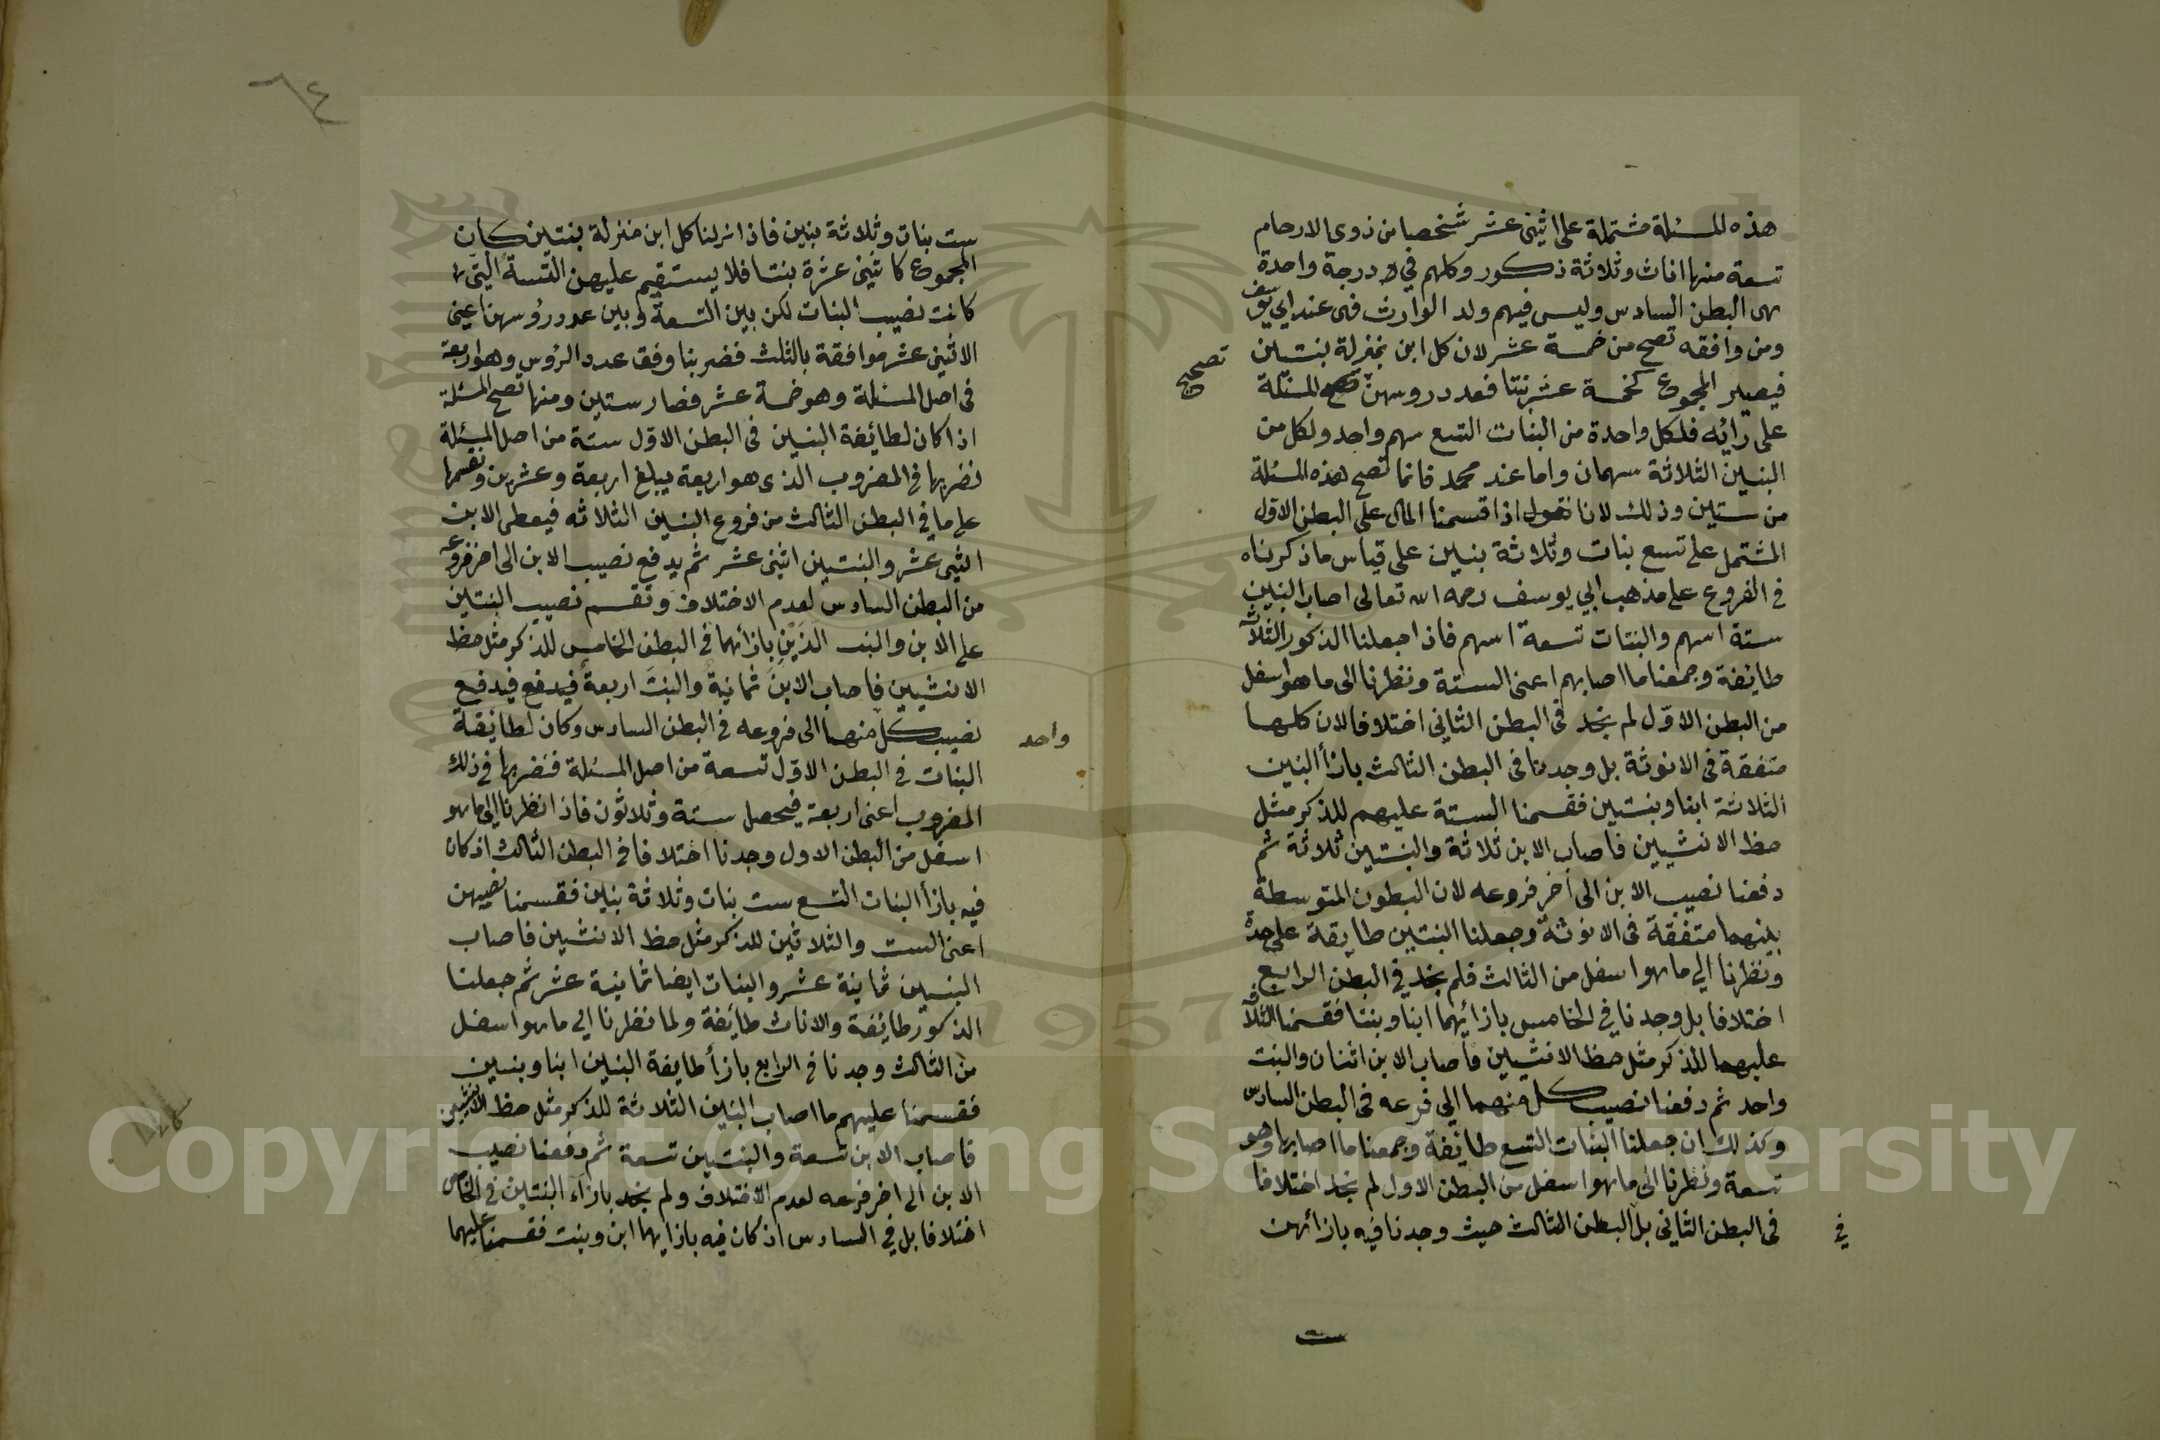 هذه المسئلة مشتملة على اثنى عشر شخصا من ذوى الارحام
تسعة منها اناث وثلاثة ذكور وكلهم في درجة واحدة
هى البطن السادس وليس فيهم ولد الوارث فهى عند ابي يوسف
ومن وافقه تصح من خمسة عشر لان كل ابن بمنزلة بنتين
تصحيح
فيصير المجموع كخمسة عشر بنتا فعدد روسهن تصحح المسئلة
على رائه فلكل واحدة من البنات التسع سهم واحد ولكل من
البنين الثلاثة سهمان واما عند محمد فانما تصح هذه المسئلة
من ستين وذلك لانا نقول اذا قسمنا المال على البطن الاول
المشتمل على تسع بنات وثلاثة بنين على قياس ما ذكرناه
في الفروع على مذهب ابي يوسف رحمه الله تعالى اصاب البنين
ستة اسهم والبنات تسعة اسهم فاذا جعلنا الذكور الثلاثة
طائفة وجمعنا ما اصابهم اعنى الستة ونظرنا الى ما هو اسفل
من البطن الاول لم نجد فى البطن الثاني اختلافا لان كلها
متفقة فى الانوثة بل وجدنا فى البطن الثالث بازأ البنين
الثلاثة ابنا وبنتين فقسمنا الستة عليهم للذكر مثل
حظ الانثيين فاصاب الابن ثلاثة والبنتين ثلاثة ثم
دفعنا نصيب الابن الى آخر فروعه لان البطون المتوسطة
بينهما متفقة فى الانوثة وجعلنا البنتين طايفة على حدة
ونظرنا الي ما هو اسفل من الثالث فلم نجد في البطن الرابع
اختلافا بل وجدنا في الخامس بازائهما ابنا وبنتا فقسمنا الثلاثة
عليهما للذكر مثل حظ الانثيين فاصاب الابن اثنان والبنت
واحد ثم دفعنا نصيب كل منهما الي فرعه فى البطن السادس
وكذلك ان جعلنا البنات التسع طائفة وجمعنا ما اصابها وهو
تسعة ونظرنا الى ما هو اسفل من البطن الاول لم نجد اختلافا
فى البطن الثاني بل البطن الثالث حيث وجدنا فيه بازائهن
في
ست
٦٤
ست بنات وثلاثة بنين فاذا انزلنا كل ابن منزلة بنتين كان
المجموع كاثنى عشرة بنتا فلا يستقيم عليهن التسعة التى
كانت نصيب البنات لكن بين التسعة وبين عدد رؤسهن اعنى
الاثنى عشر موافقة بالثلث فضربنا وفق عدد الرؤس وهو اربعة
فى اصل المسئلة وهو خمسة عشر فصار ستين ومنها تصح المسئلة
اذا كان لطائفة البنين فى البطن الاول ستة من اصل المسئلة
نضربها في المضروب الذى هو اربعة يبلغ اربعة وعشرين ونقسمها
على ما في البطن الثالث من فروع البنين الثلاثه فيعطى الابن
اثنى عشر والبنتين اثنى عشر ثم يدفع نصيب الابن الى اخر فروعه
من البطن السادس لعدم الاختلاف ونقسم نصيب البنتين
على الابن والبنت الذين بازائهما في البطن الخامس للذكر مثل حظ
الانثيين فاصاب الابن ثمانية والبنت اربعة فيدفع فيدفع
نصيب كل منهما الى فروعه في البطن السادس وكان لطائفة
واحد
البنات في البطن الاول تسعة من اصل المسئلة فنضربها في ذلك
المضروب اعنى اربعة فيحصل ستة وثلاثون فاذا نظرنا الى ما هو
اسفل من البطن الاول وجدنا اختلافا في البطن الثالث اذ كان
فيه بازأ البنات التسع ست بنات وثلاثة بنين فقسمنا نصيبهن
اعنى الست والثلاثين للذكر مثل حظ الانثيين فاصاب
البنين ثمانية عشر والبنات ايضا ثمانية عشر ثم جعلنا
الذكور طائفة والاناث طائفة ولما نظرنا الي ما هو اسفل
من الثالث وجدنا في الرابع بازأ طايفة البنين ابنا وبنتين
فقسمنا عليهم ما اصاب البنين الثلاثة للذكر مثل حظ الانثيين
فاصاب الابن تسعة والبنتين تسعة ثم دفعنا نصيب
الابن الى اخر فرعه لعدم الاختلاف ولم نجد بازاء البنتين في الخامس
اختلافا بل في السادس اذ كان فيه بازايهما ابن وبنت فقسمنا عليهما
1957
Copyright © King Saud University